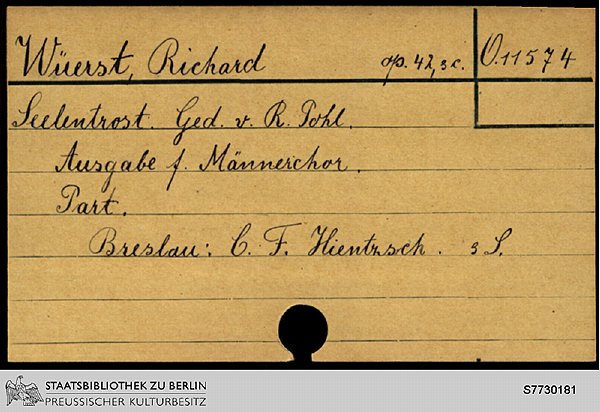 Wüerst, Richard op. 42, 3 c. O.11574
Seelentrost. Ged. v. R. Pohl.
Ausgabe f. Männerchor.
Part.
Breslau: C. F. Hientzsch. 3 S.
STAATSBIBLIOTHEK ZU BERLIN
PREUSSISCHER KULTURBESITZ
S7730181